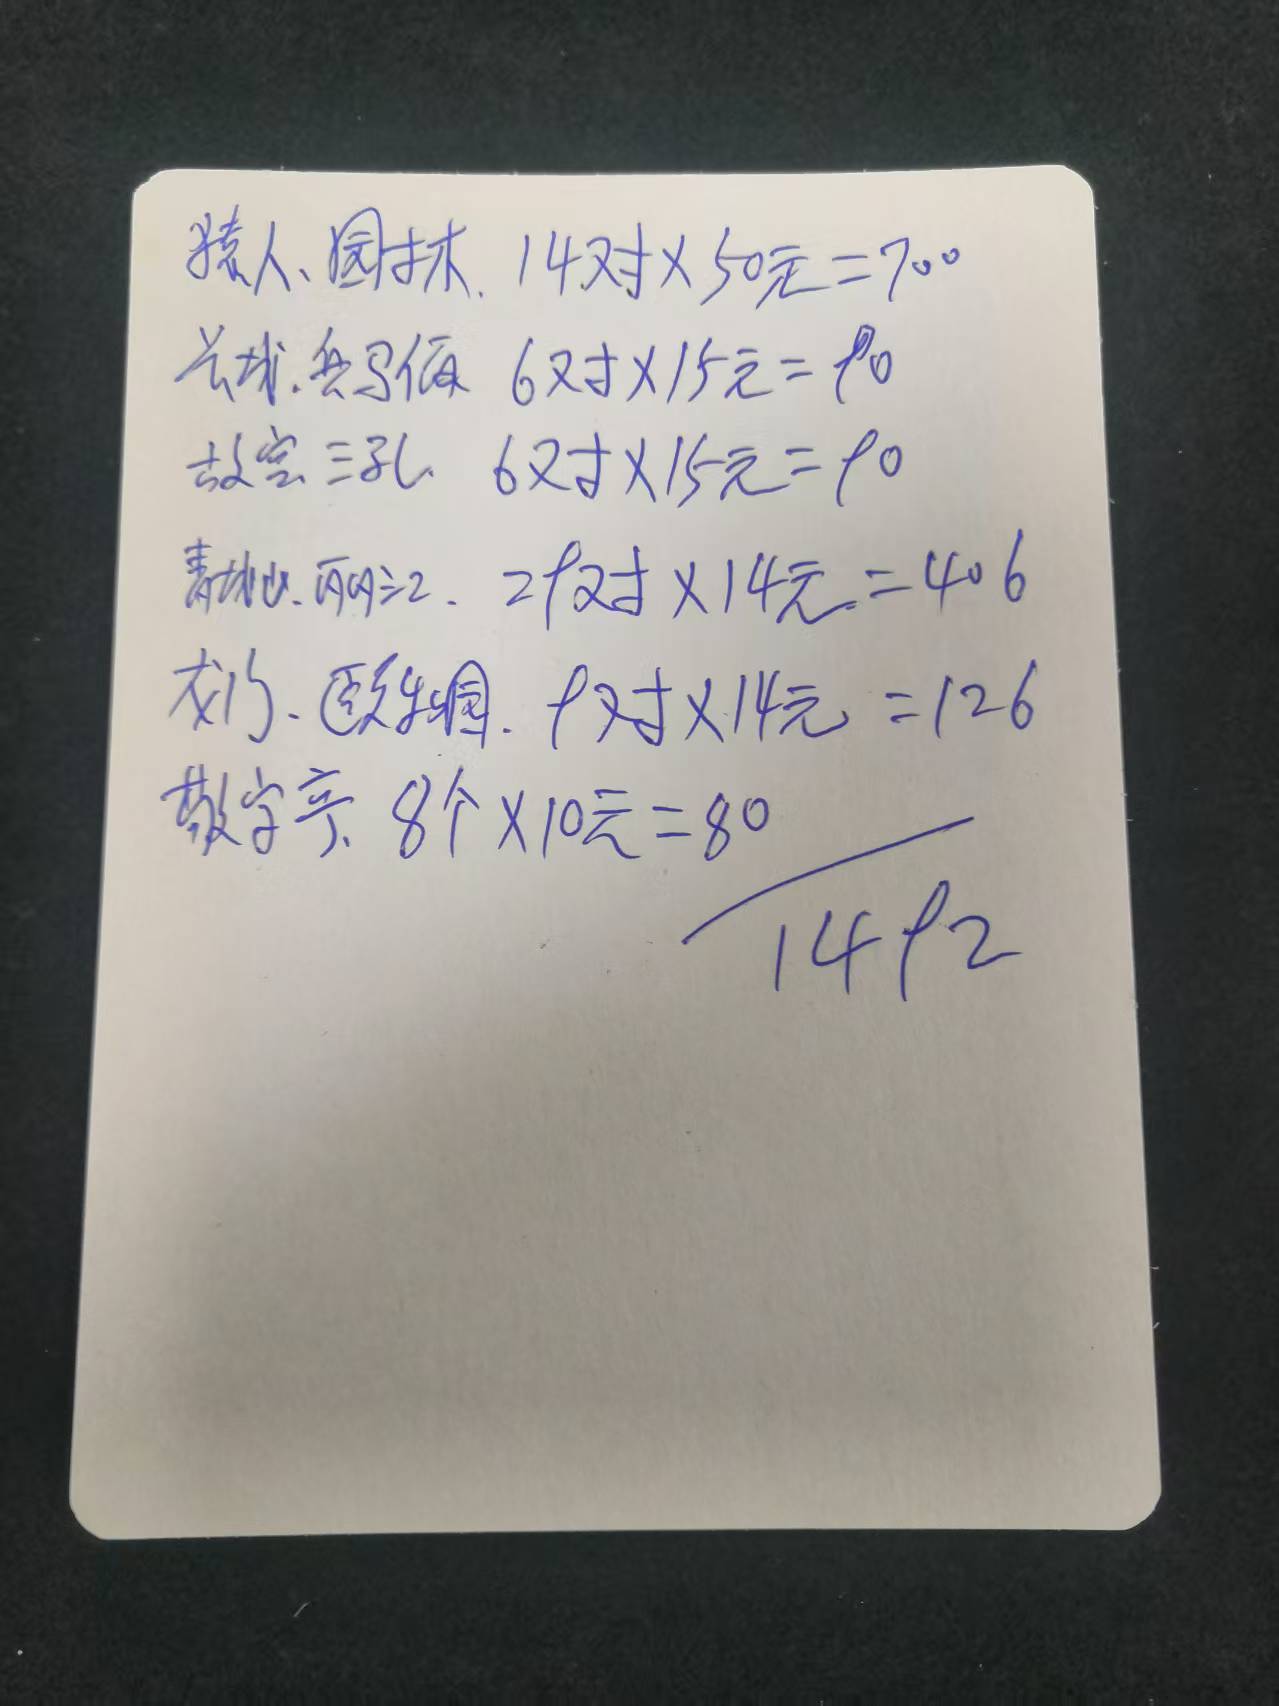 猿人、园林. 14对×50元=700
长城.兵马俑 6对×15元=90
故宫三孔. 6对×15元=90
青城山.丽江2. 29对×14元.=406
龙门.颐和园. 9对×14元=126
数字亭. 8个×10元=80
1492